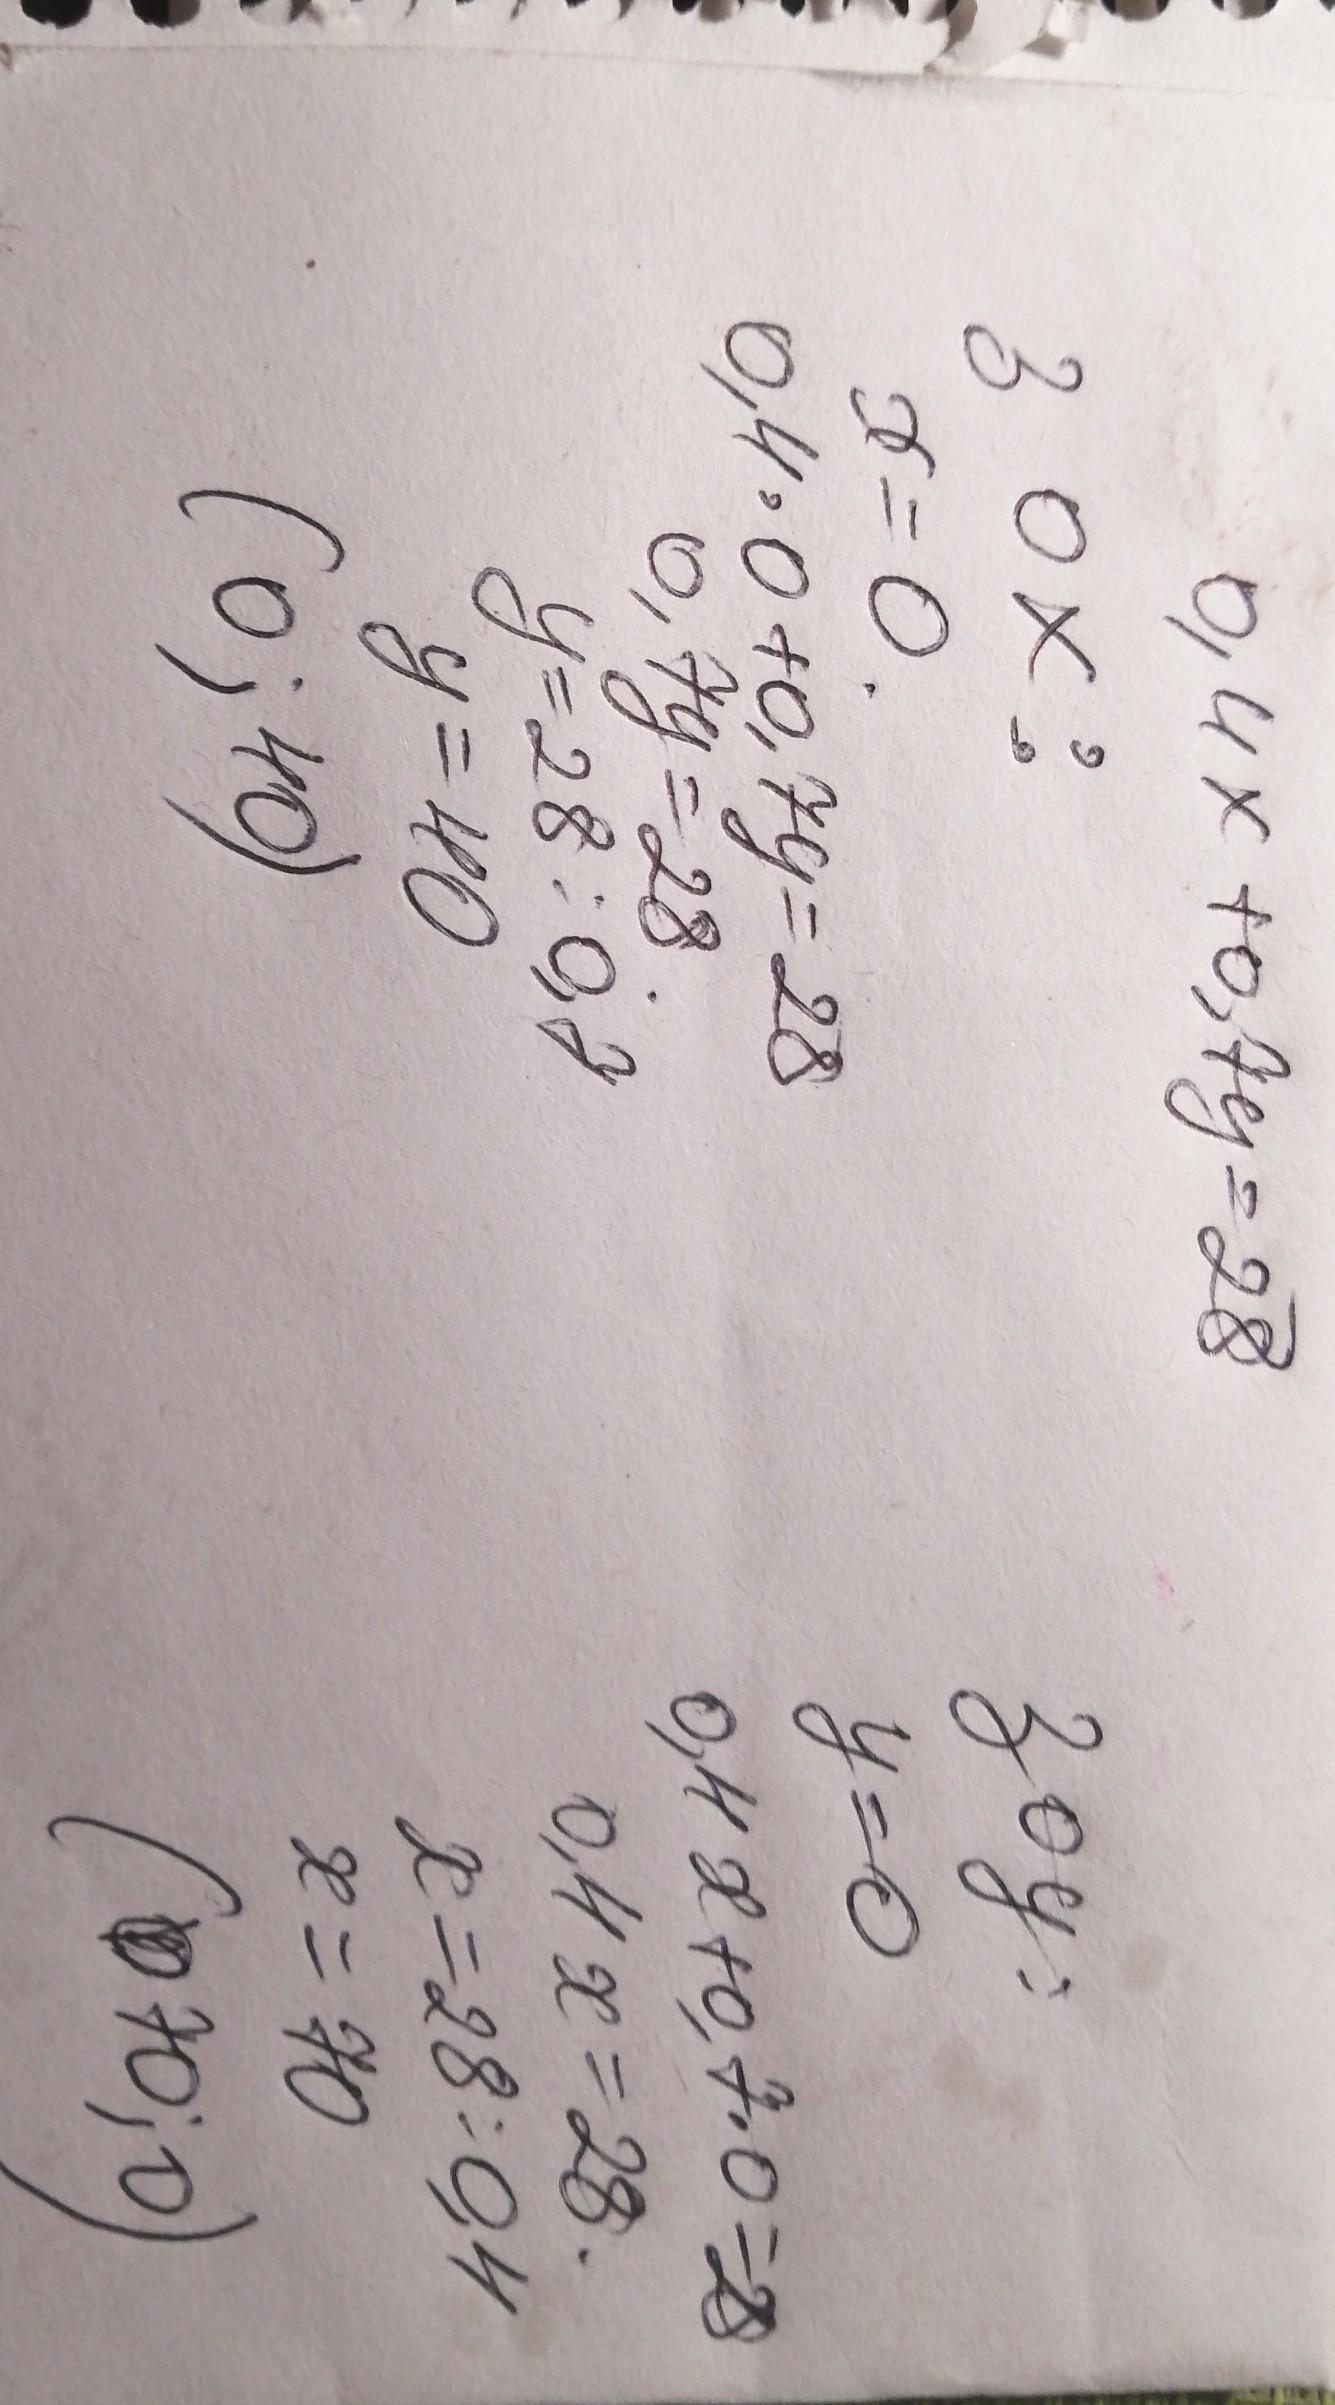 0,4x+0,7y=28
З ОХ:
x=0.
0,4·0+0,7y=28
0,7y=28
y=28:0,7
y=40
(0; 40)
З Оy:
y=0
0,4x+0,7·0=28
0,4x=28.
x=28:0,4
x=70
(70; 0)